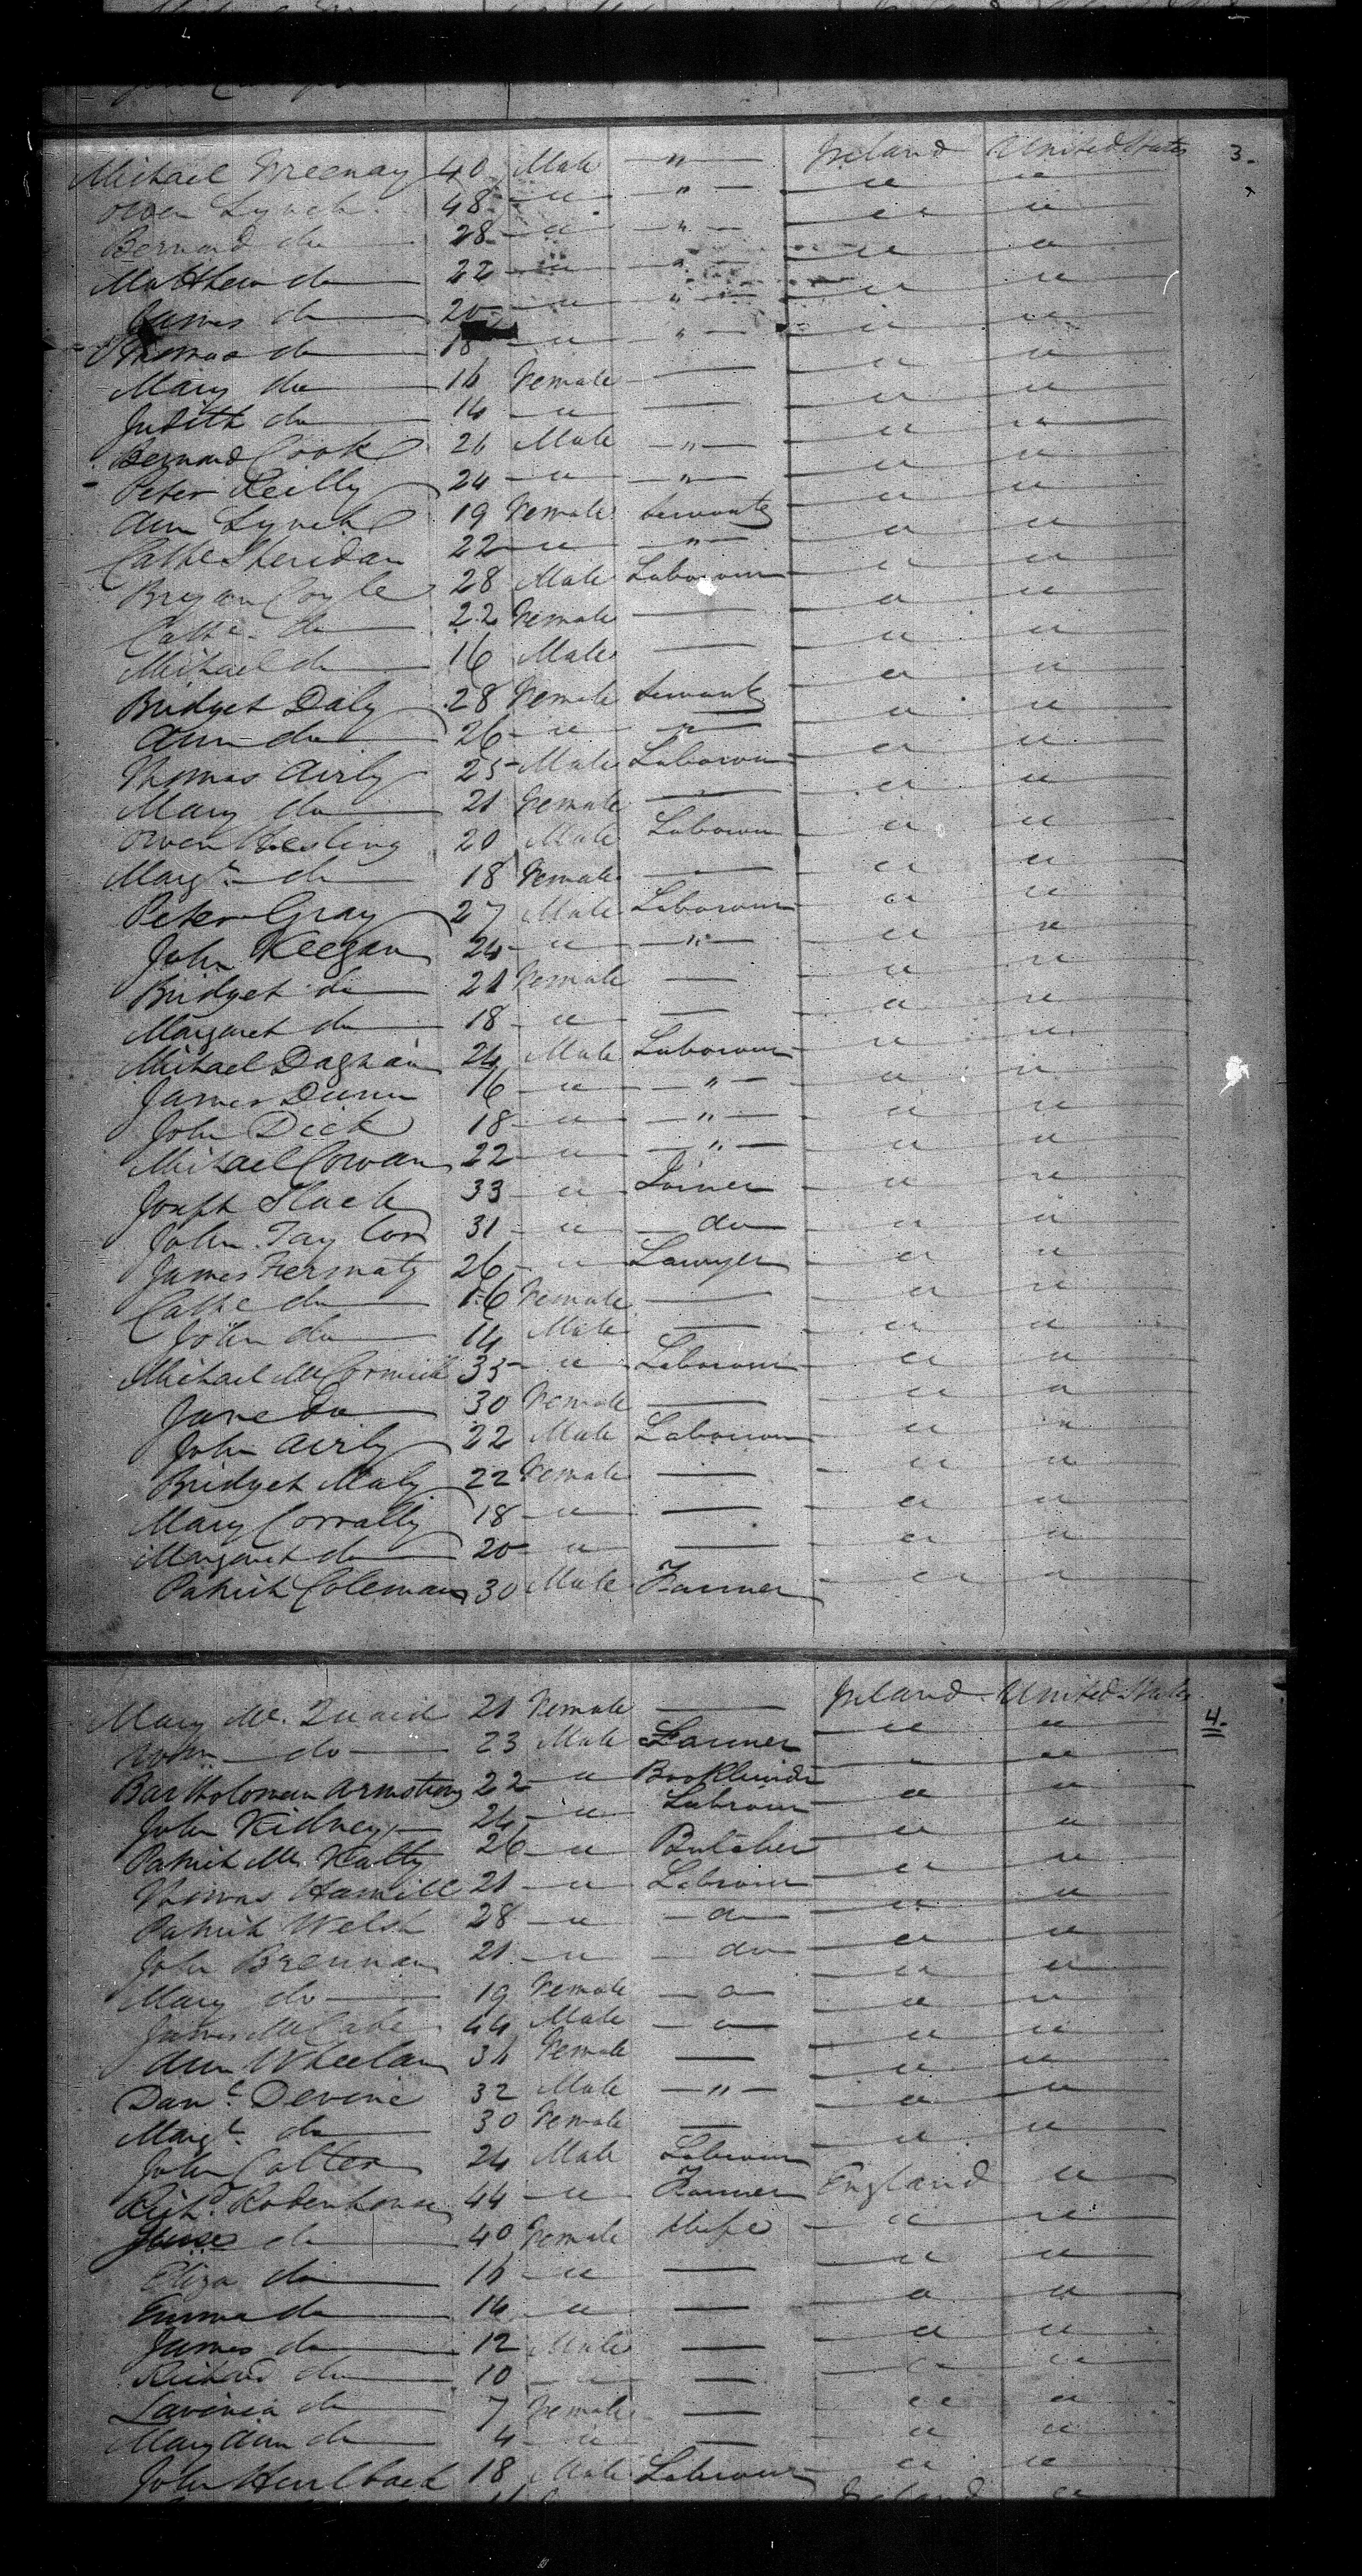 Michael Greenay 40 Male " Ireland United States 3.
Owen Lynch 48 " " " "
Bernard do 28 " " " "
Matthew do 22 " " " "
James do 20 " " " "
Thomas do 18 " " " "
Mary do 16 Female — " "
Judith do 14 " — " "
Bernard Cook 26 Male " " "
Peter Reilly 24 " " " "
Ann Lynch 19 Female Servants " "
Cathe Sheridan 22 " " " "
Bryan Coyle 28 Male Labourer " "
Cathe do 22 Female — " "
Michael do 16 Male — " "
Bridget Daly 28 Female Servants " "
Ann do 26 " " " "
Thomas Airly 25 Male Labourer " "
Mary do 21 Female — " "
Owen 20 Male Labourer " "
Margt do 18 Female — " "
Peter Gray 27 Male Labourer " "
John Keegan 24 " " " "
Bridget do 21 Female — " "
Margaret do 18 " — " "
Michael Dagnan 24 Male Labourer " "
James Dunn 16 " " " "
John Dick 18 " " " "
Michael Cowan 22 " " " "
Joseph Slack 33 " Joiner " "
John Taylor 31 " do " "
James 26 " Lawyer " "
Cathe do 16 Female — " "
John do 14 Male — " "
Michael McCormick 35 " Labourer " "
Jane Do 30 Female — " "
John Airly 22 Male Labourer " "
Bridget Maly 22 Female — " "
Mary Connally 18 " — " "
Margaret do 20 " — " "
Patrick Coleman 30 Male Farmer " "
Mary Mc.Quaid 21 Female — Ireland United States 4.
John do 23 Male Farmer " "
Bartholomew Armstrong 22 " Bookbinder " "
John Kidney 24 " Labrour " "
Patrick Mc.Nalty 26 " Butcher " "
Thomas Hamill 21 " Labrour " "
Patrick Welsh 28 " do " "
John Brennan 21 " do " "
Mary do 19 Female " "
James McCabe 44 Male " "
Ann Wheelan 36 Female — " "
Danl Devine 32 Male " " "
Margt do 30 Female — " "
John Colter 24 Male Labrour " "
Richd 44 " Farmer England "
do 40 Female Wife " "
Eliza do 16 " — " "
Emma do 14 " — " "
James do 12 Male — " "
Richard do 10 " — " "
Lavinia do 7 Female — " "
Mary Ann do 4 " — " "
John Hurlback 18 Male Labrour " "
Ireland "